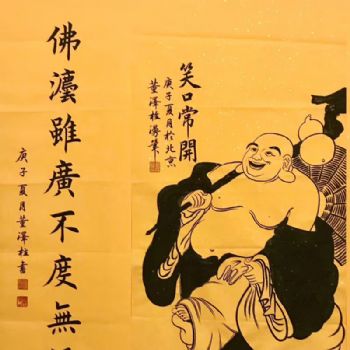 笑口常開
庚子夏月於北京
董澤桂濤筆
佛灋雖廣不度無
庚子夏月董澤桂書